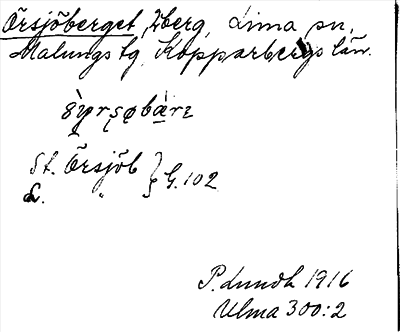 Örsjöberget, 2berg, Lima sn,
Malungs tg, Kopparbergs län.
St. Örsjöb
L. " } G. 102
P. Lundh 1916
Ulma 300:2